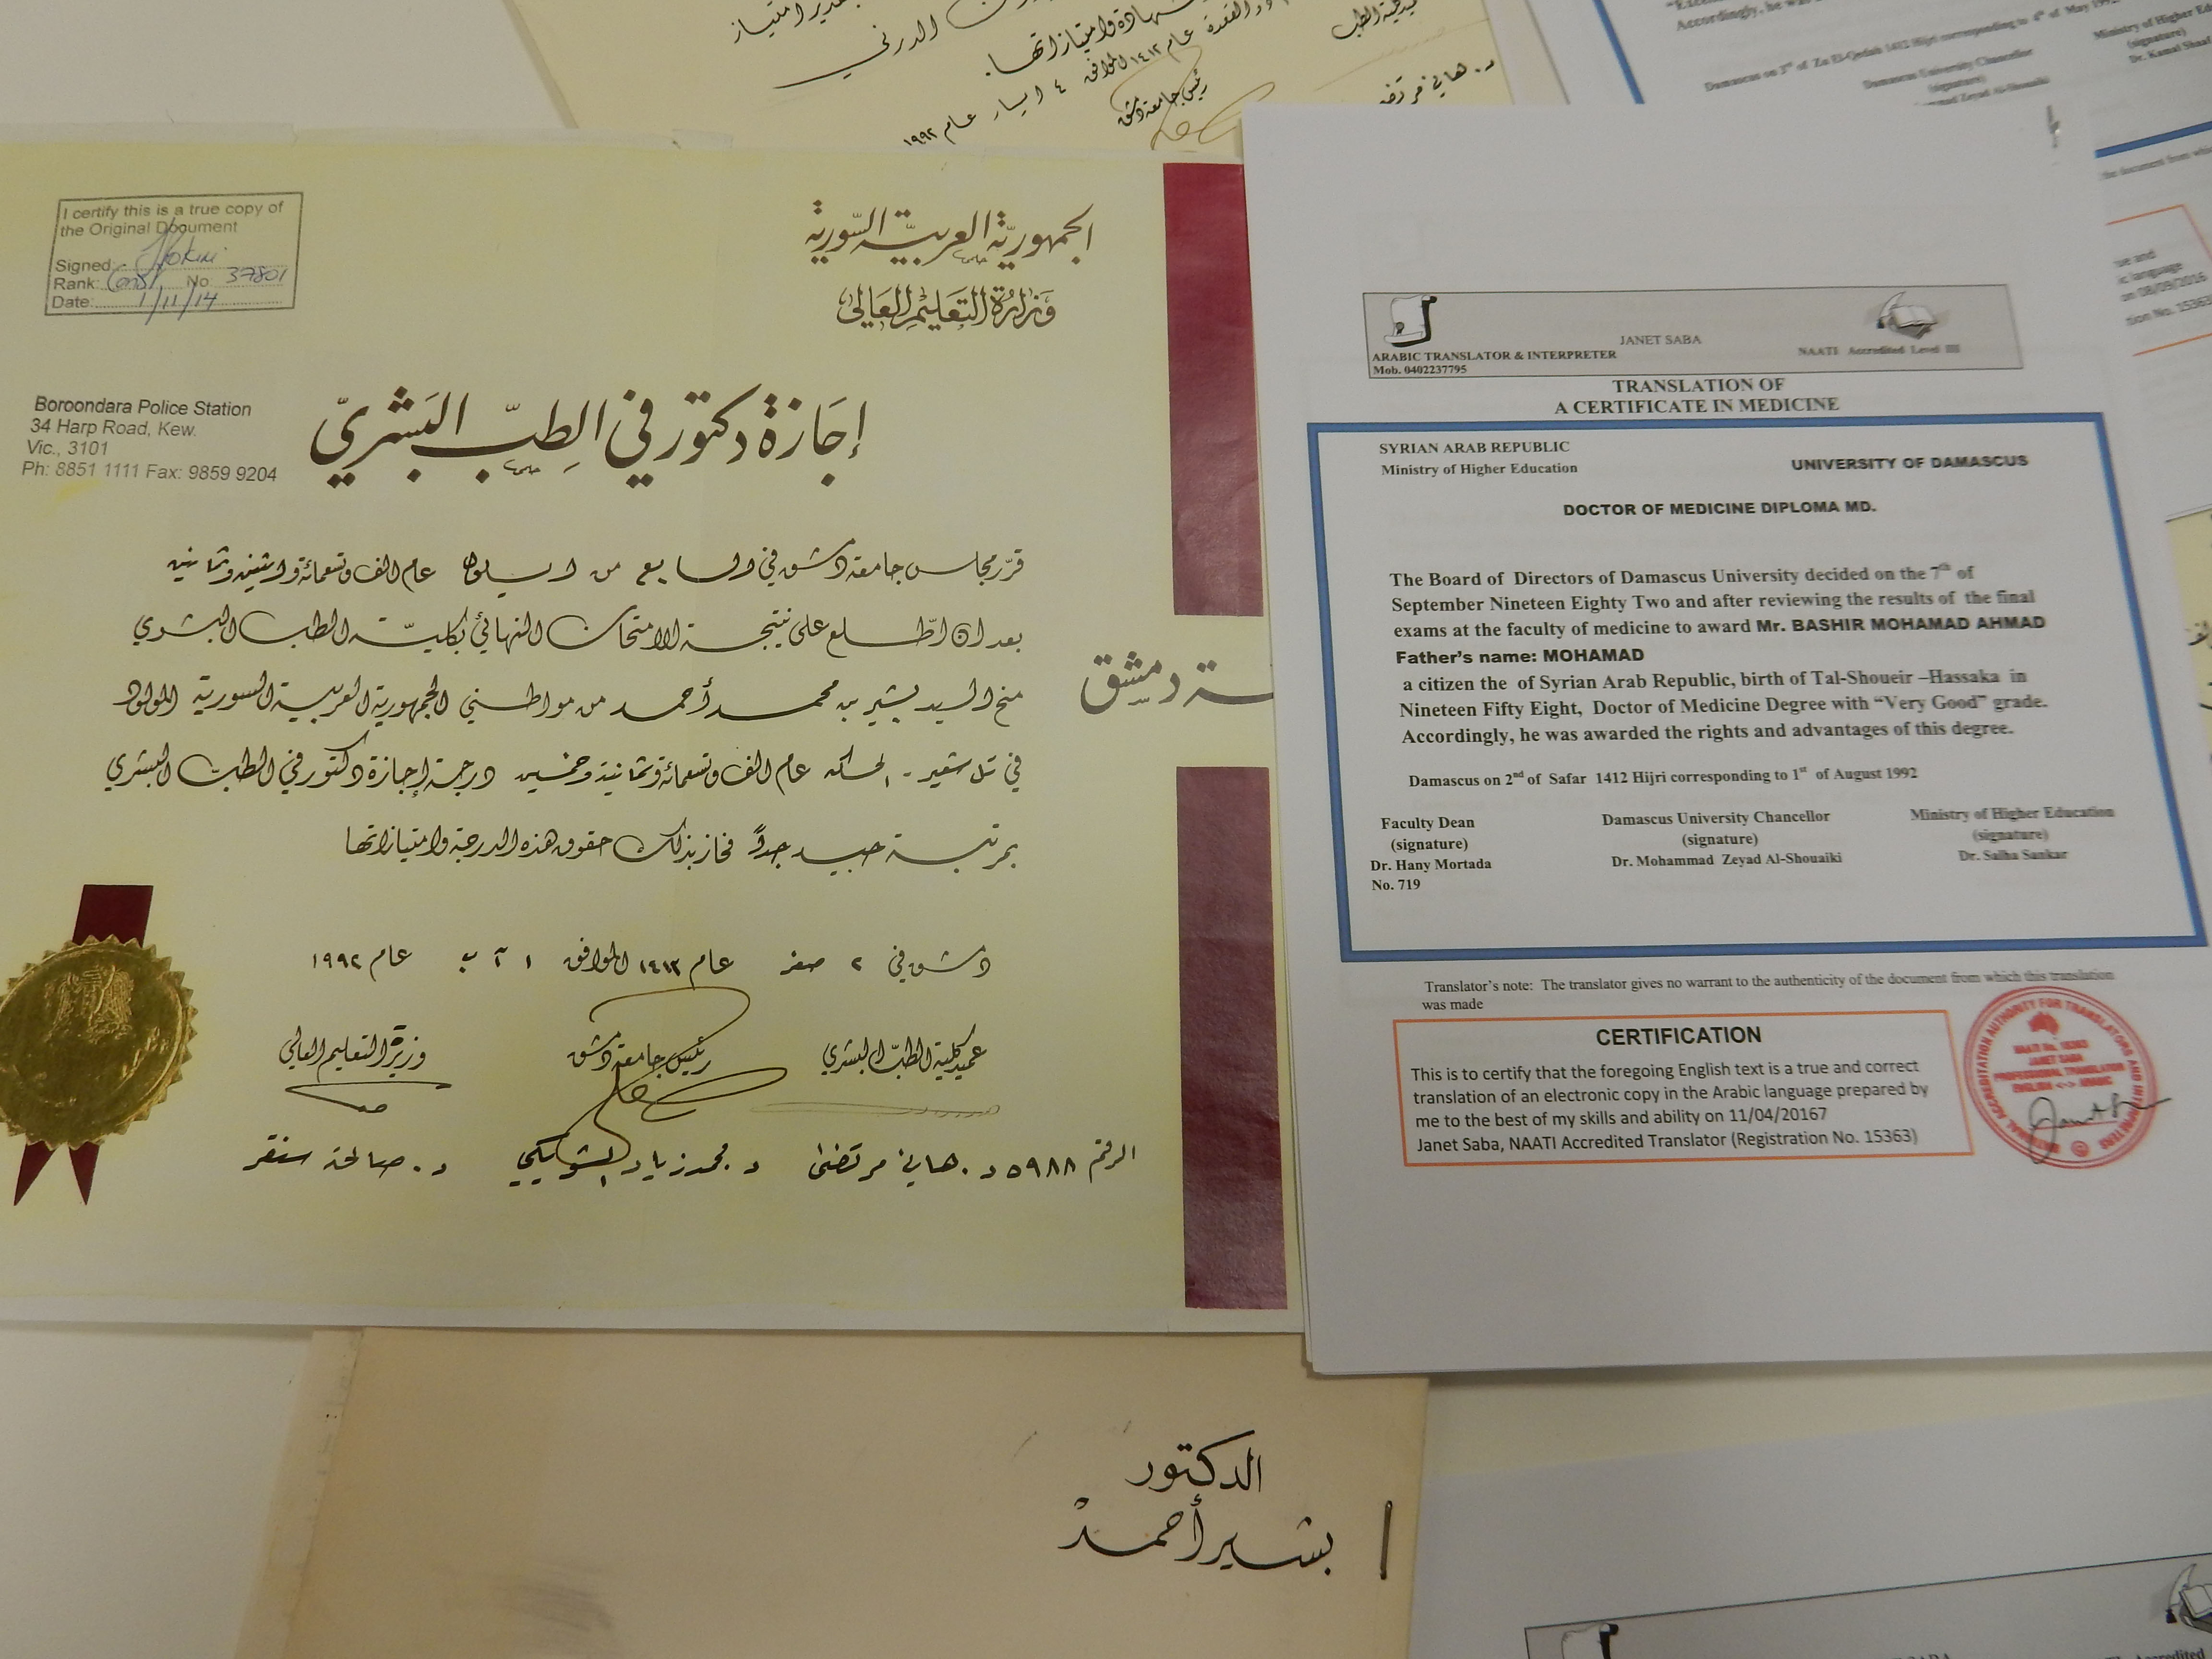 تقدير امتياز
الدرني
شهادة وامتيازاتها.
ذو القعدة عام ١٤١٢ الموافق ٤ ايار عام ١٩٩٢
رئيس جامعة دمشق
د. هاني مرتضى
I certify this is a true copy of
the Original Document
Signed:
Rank: Const No 37801
Date: 1/11/14
Boroondara Police Station
34 Harp Road, Kew.
Vic., 3101
Ph: 8851 1111 Fax: 9859 9204
الجمهورية العربية السورية
وزارة التعليم العالي
إجازة دكتور في الطب البشري
قرر مجلس جامعة دمشق في السابع من ايلول عام الف وتسعمائة واثنين وثمانين
بعد ان اطلع على نتيجة الامتحان النهائي بكلية الطب البشري
منح السيد بشير بن محمد أحمد من مواطني الجمهورية العربية السورية المولود
في تل شعير - الحسكه عام الف وتسعمائة وثمانية وخمسين درجة إجازة دكتور في الطب البشري
بمرتبة جيد جداً فحاز بذلك حقوق هذه الدرجة وامتيازاتها
دمشق في ٢ صفر عام ١٤١٣ الموافق ١ آب عام ١٩٩٢
عميد كلية الطب البشري رئيس جامعة دمشق وزيرة التعليم العالي
الرقم ٥٩٨٨ د. هاني مرتضى د. محمد زياد الشويكي د. صالحة سنقر
ـة دمشق
الدكتور
بشير أحمد
Accordingly, he was
Damascus on 3rd of Zu El-Qedah 1412 Hijri corresponding to 4th of May 199
Damascus University Chancellor
(signature)
mad Zeyad Al-Shouaiki
Ministry of Higher Ed
(signature)
Dr. Kamal Sha
the document from whic
ue and
ic language
on 08/09/2016
tion No. 15363
JANET SABA
ARABIC TRANSLATOR & INTERPRETER NAATI Accredited Level III
Mob. 0402237795
TRANSLATION OF
A CERTIFICATE IN MEDICINE
SYRIAN ARAB REPUBLIC
Ministry of Higher Education UNIVERSITY OF DAMASCUS
DOCTOR OF MEDICINE DIPLOMA MD.
The Board of Directors of Damascus University decided on the 7th of
September Nineteen Eighty Two and after reviewing the results of the final
exams at the faculty of medicine to award Mr. BASHIR MOHAMAD AHMAD
Father's name: MOHAMAD
a citizen the of Syrian Arab Republic, birth of Tal-Shoueir –Hassaka in
Nineteen Fifty Eight, Doctor of Medicine Degree with “Very Good” grade.
Accordingly, he was awarded the rights and advantages of this degree.
Damascus on 2nd of Safar 1412 Hijri corresponding to 1st of August 1992
Faculty Dean Damascus University Chancellor Ministry of Higher Education
(signature) (signature) (signature)
Dr. Hany Mortada Dr. Mohammad Zeyad Al-Shouaiki Dr. Salha Sankar
No. 719
Translator's note: The translator gives no warrant to the authenticity of the document from which this translation
was made
CERTIFICATION
This is to certify that the foregoing English text is a true and correct
translation of an electronic copy in the Arabic language prepared by
me to the best of my skills and ability on 11/04/20167
Janet Saba, NAATI Accredited Translator (Registration No. 15363)
NAATI No. 15363
JANET SABA
PROFESSIONAL TRANSLATOR
ENGLISH <-> ARABIC